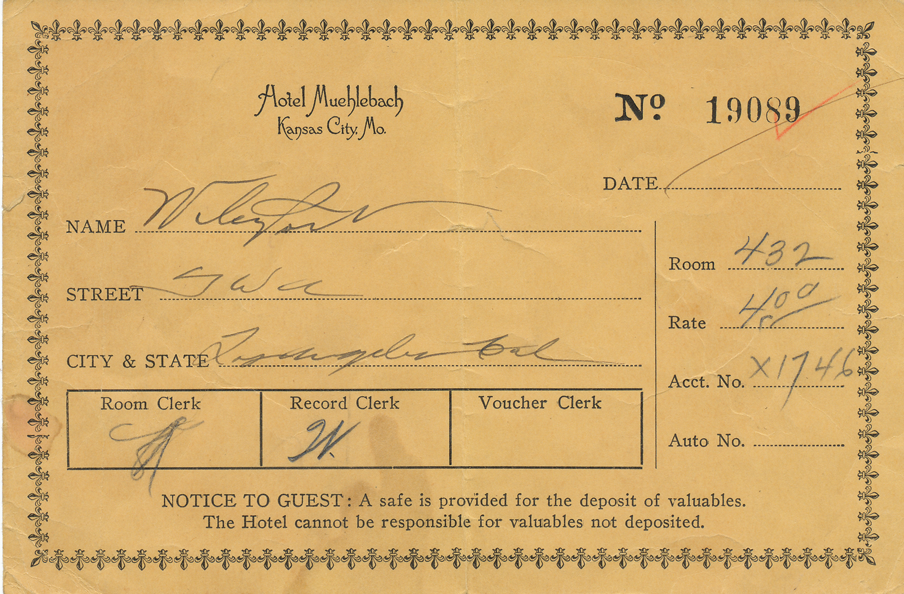 Hotel Muehlebach
Kansas City, Mo.
No 19089
DATE
NAME Wiley Post
STREET TWA
CITY & STATE Los Angeles Cal
Room 432
Rate 4.00
Acct. No. X1746
Auto No.
Room Clerk Record Clerk Voucher Clerk
W.
NOTICE TO GUEST: A safe is provided for the deposit of valuables.
The Hotel cannot be responsible for valuables not deposited.